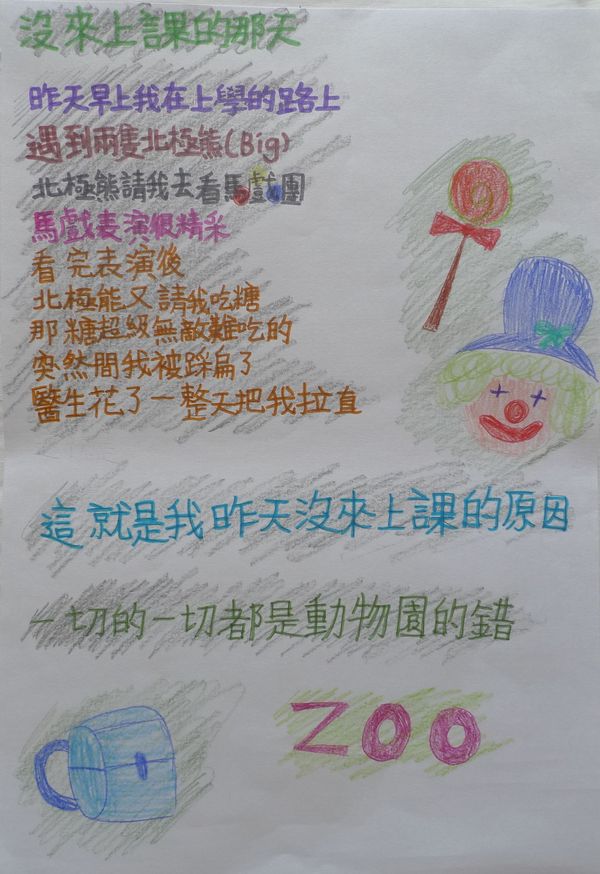 沒來上課的那天
昨天早上我在上學的路上
遇到兩隻北極熊(Big)
北極熊請我去看馬戲團
馬戲表演很精采
看完表演後
北極能又請我吃糖
那糖超級無敵難吃的
突然間我被踩扁了
醫生花了一整天把我拉直
這就是我昨天沒來上課的原因
一切的一切都是動物園的錯
ZOO